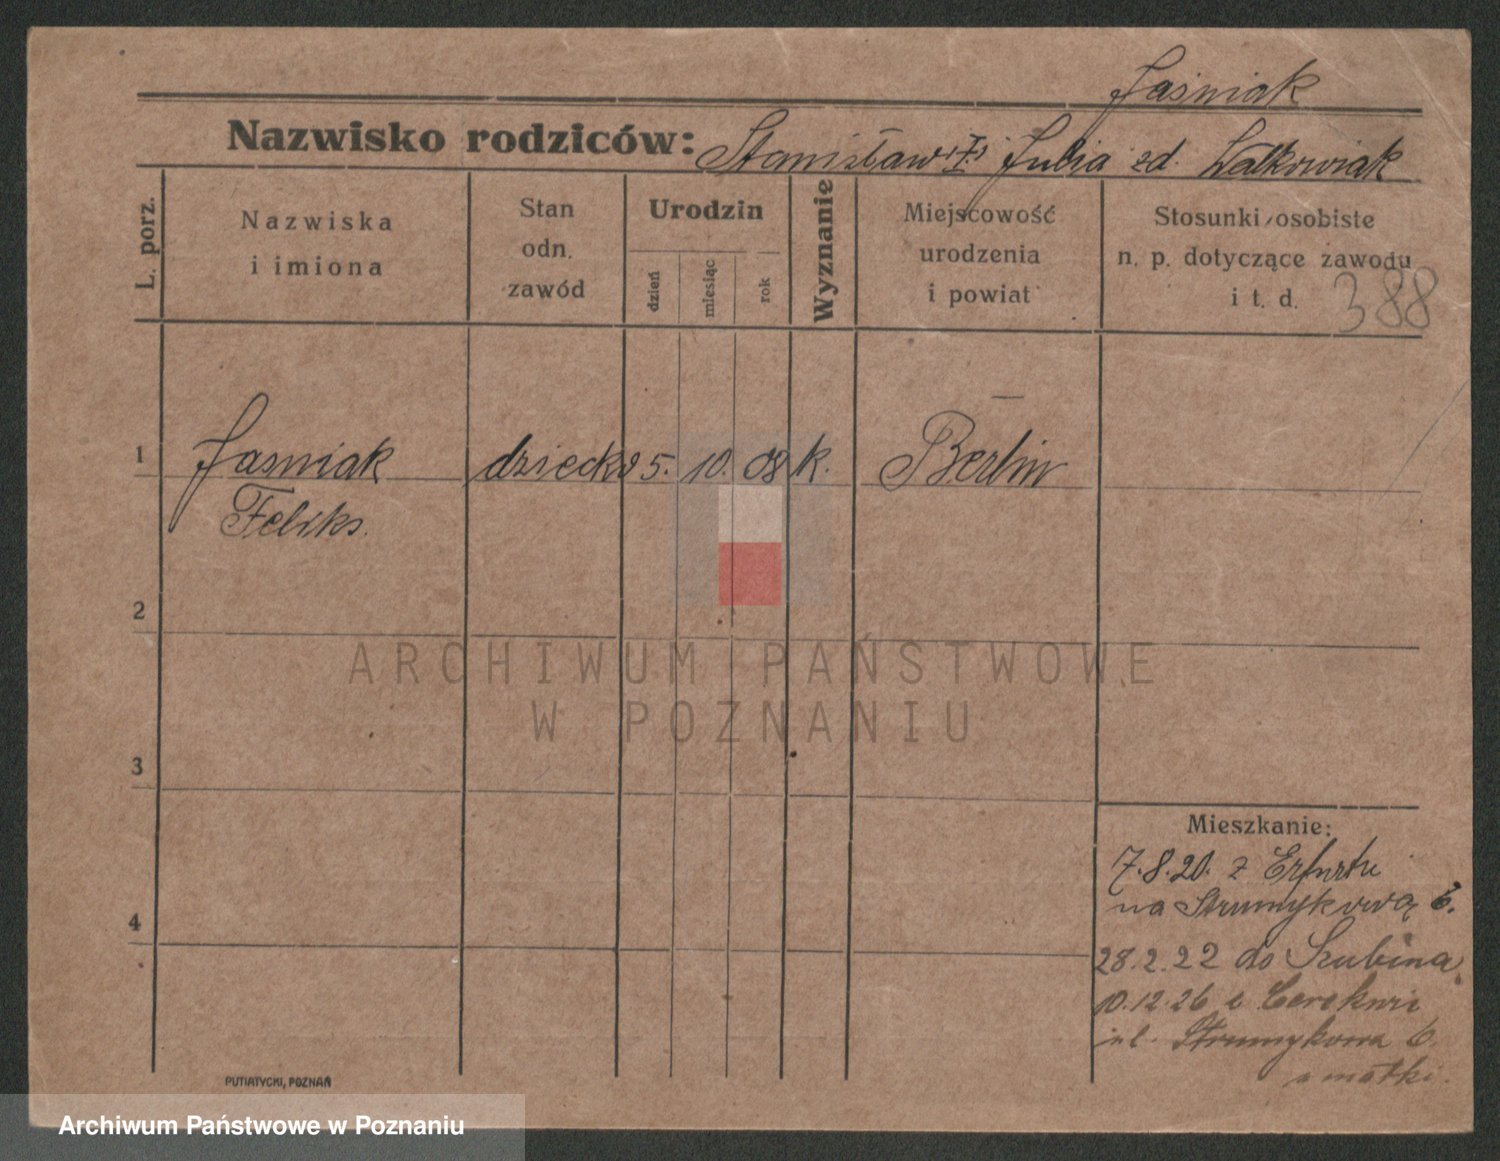 Jaśniak
Nazwisko rodziców: Stanisław i Julia zd. Walkowiak
L. porz.
Nazwiska
i imiona
Stan
odn.
zawód
Urodzin
dzień
miesiąc
rok
Wyznanie
Miejscowość
urodzenia
i powiat
Stosunki osobiste
n. p. dotyczące zawodu
i t. d.
388
1 Jasniak dziecko 5. 10. 08 k. Berlin
Feliks.
2
3
4
ARCHIWUM PAŃSTWOWE
W POZNANIU
Mieszkanie:
7.8.20. z Erfurtu
na Strumykową 6.
28.2.22 do Szubina
10.12.26 z Cerekwi
ul. Strumykowa 6.
u matki.
PUTIATYCKI, POZNAŃ
Archiwum Państwowe w Poznaniu